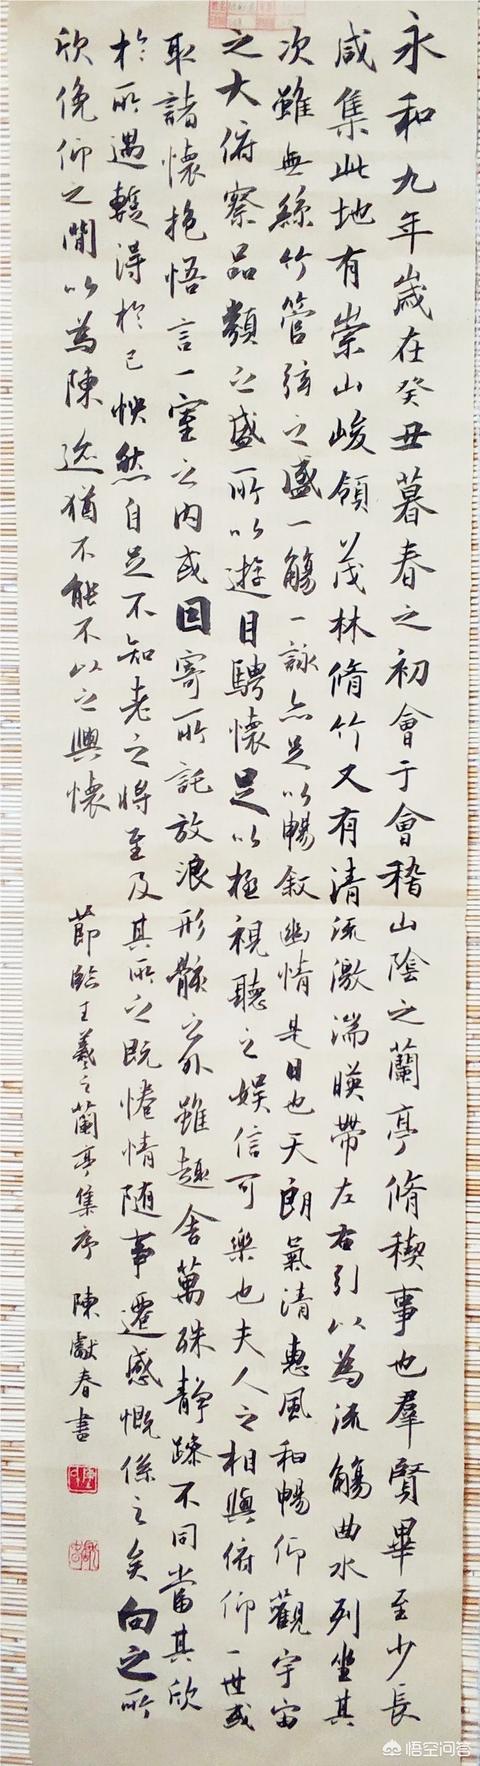 永和九年歲在癸丑暮春之初會于會稽山陰之蘭亭脩稧事也羣賢畢至少長
咸集此地有崇山峻領茂林脩竹又有清流激湍暎帶左右引以為流觴曲水列坐其
次雖無絲竹管弦之盛一觴一詠亦足以暢叙幽情是日也天朗氣清惠風和暢仰觀宇宙
之大俯察品類之盛所以遊目騁懷足以極視聽之娛信可樂也夫人之相與俯仰一世或
取諸懷抱悟言一室之內或因寄所託放浪形骸之外雖趣舍萬殊靜躁不同當其欣
於所遇蹔得於己怏然自足不知老之將至及其所之既惓情隨事遷感慨係之矣向之所
欣俛仰之閒以為陳迹猶不能不以之興懷
節臨王羲之蘭亭集序 陳獻春書
悟空问答